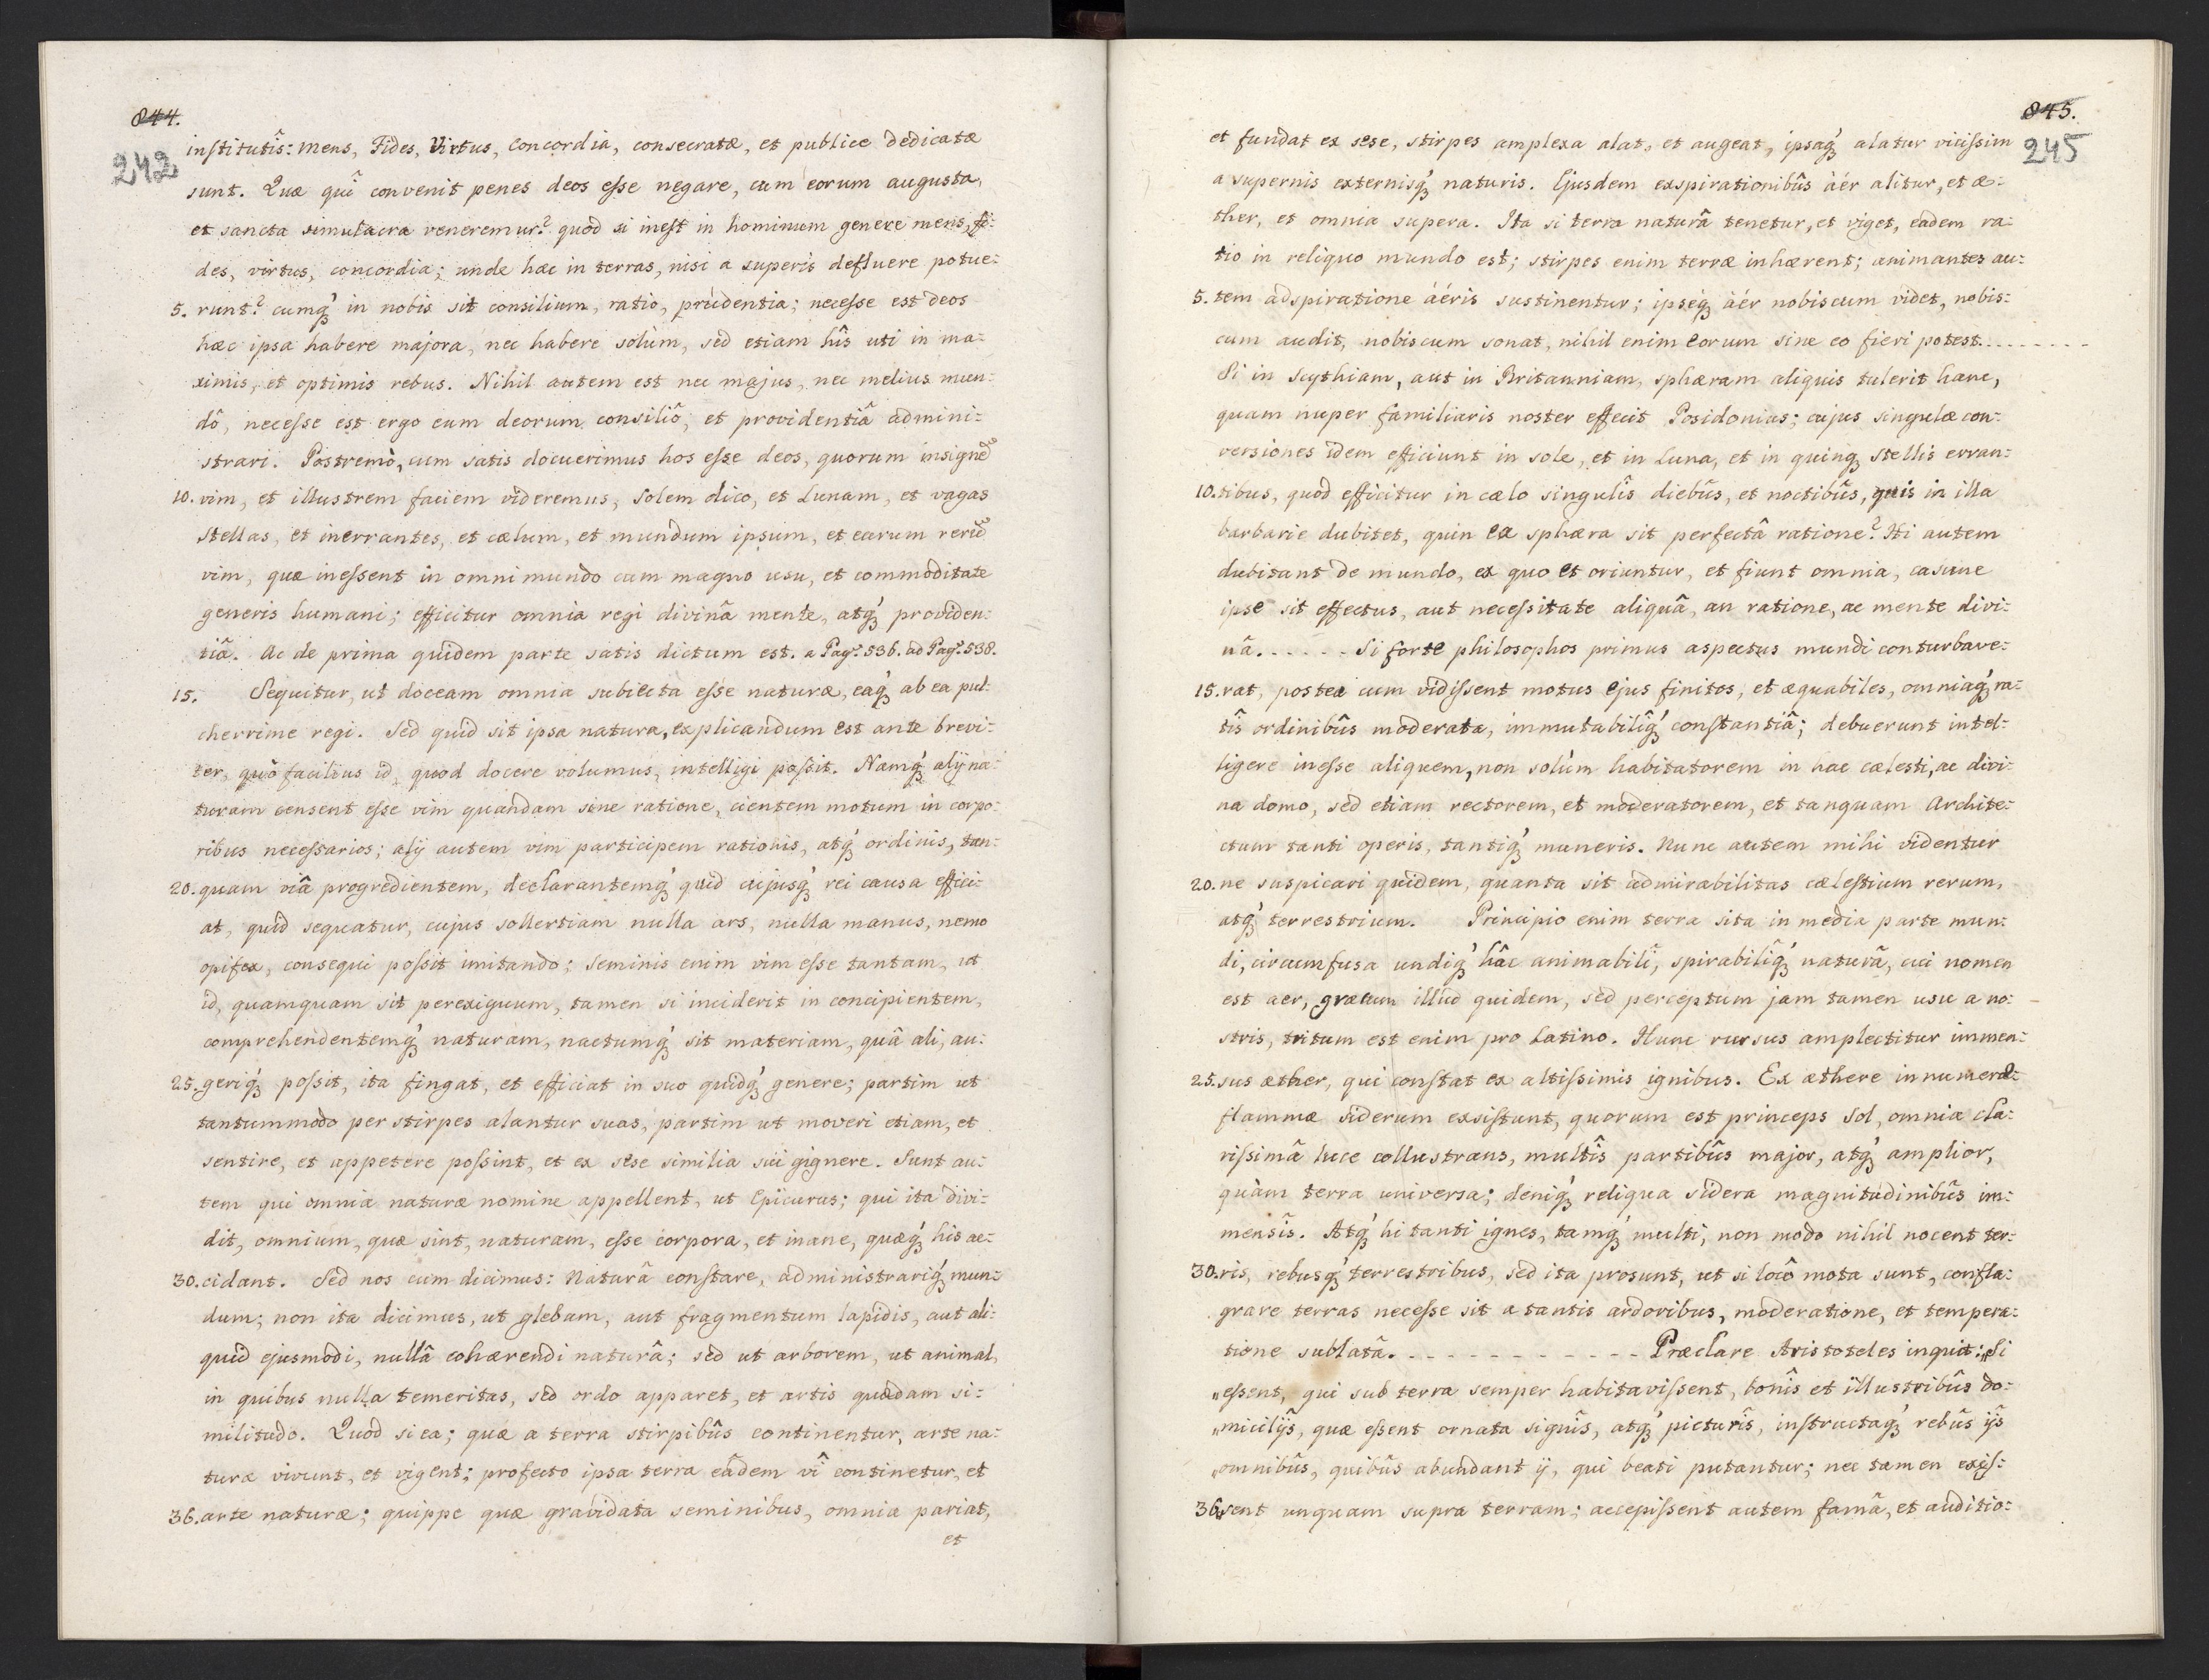 844.
242
institutîs: mens, Fides, Virtus, Concordia, consecratæ, et publice dedicatæ
sunt. Quæ quî convenit penes deos esse negare, cum eorum augusta,
et sancta simulacra veneremur? quod si inest in hominum genere mens, fi=
des, virtus, concordia; unde hæc in terras, nisi a superis defluere potue=
5. runt? cumq́ꝫ in nobis sit consilium, ratio, prudentia; necesse est deos
hæc ipsa habere majora, nec habere solùm, sed etiam hîs uti in ma=
ximis, et optimis rebus. Nihil autem est nec majus, nec melius mun=
dô, necesse est ergo eum deorum consiliô, et providentiâ admini=
strari. Postremò, cum satis docuerimus hos esse deos, quorum insignē
10. vim, et illustrem faciem videremus, Solem dico, et Lunam, et vagas
stellas, et inerrantes, et cælum, et mundum ipsum, et earum rerū
vim, quæ inessent in omni mundo cum magno usu, et commoditate
generis humani; efficitur omnia regi divinâ mente, atq́ꝫ providen=
tiâ. Ac de prima quidem parte satis dictum est. a Pag. 536. ad Pag. 538.
15. Sequitur, ut doceam omnia subiecta esse naturæ, eaq́ꝫ ab ea pul=
cherrime regi. Sed quid sit ipsa natura, explicandum est ante brevi=
ter, quò facilius id, quod docere volumus, intelligi possit. Namq́ꝫ alij na=
turam censent esse vim quandam sine ratione, cientem motum in corpo=
ribus necessarios; alij autem vim participem rationis, atq́ꝫ ordinis, tan=
20. quam viâ progredientem, declarantemq́ꝫ quid cujusq́ꝫ rei causa effici=
at, quid sequatur, cujus sollertiam nulla ars, nulla manus, nemo
opifex, consequi possit imitando; seminis enim vim esse tantam, ut
id, quamquam sit perexiguum, tamen si inciderit in concipientem,
comprehendentemq́ꝫ naturam, nactumq́ꝫ sit materiam, quâ ali, au=
25. geriq́ꝫ possit, ita fingat, et efficiat in suo quidq́ꝫ genere; partim ut
tantummodo per stirpes alantur suas, partim ut moveri etiam, et
sentire, et appetere possint, et ex sese similia sui gignere. Sunt au=
tem qui omnia naturæ nomine appellent, ut Epicurus; qui ita divi=
dit, omnium, quæ sint, naturam, esse corpora, et inane, quæq́ꝫ his ac=
30. cidant. Sed nos cum dicimus: Naturâ constare, administrariq́ꝫ mun=
dum; non ita dicimus, ut glebam, aut fragmentum lapidis, aut ali=
quid ejusmodi, nullâ cohærendi naturâ; sed ut arborem, ut animal,
in quibus nulla temeritas, sed ordo apparet, et artis quædam si=
militudo. Quòd si ea; quæ a terra stirpibûs continentur, arte na=
turæ vivunt, et vigent; profecto ipsa terra eâdem vî continetur, et
36. arte naturæ; quippe quæ gravidata seminibus, omnia pariat,
et
845.
245
et fundat ex sese, stirpes amplexa alat, et augeat, ipsaq́ꝫ alatur vicissim
a supernis externisq́ꝫ naturis. Ejusdem exspirationibûs àér alitur, et æ=
ther, et omnia supera. Ita si terra naturâ tenetur, et viget, eadem ra=
tio in reliquo mundo est; stirpes enim terræ inhærent; animantes au=
5. tem adspiratione áéris sustinentur; ipseq́ꝫ àér nobiscum videt, nobis=
cum audit, nobiscum sonat, nihil enim eorum sine eo fieri potest. . . . . . . . .
Si in Scythiam, aut in Britanniam, sphæram aliquis tulerit hanc,
quam nuper familiaris noster effecit Posidonius; cujus singulæ con=
versiones idem efficiunt in sole, et in Luna, et in quinqꝫ stellis erran=
10. tibus, quod efficitur in cælo singulîs diebûs, et noctibûs, quis in illa
barbarie dubitet, quin ea sphæra sit perfectâ ratione? Hi autem
dubitant de mundo, ex quo et oriuntur, et fiunt omnia, casune
ipse sit effectus, aut necessitate aliquâ, an ratione, ac mente divi=
nâ. . . . . . Si forte philosophos primus aspectus mundi conturbave=
15. rat, postea cum vidissent motus ejus finitos, et æquabiles, omniaq́ꝫ ra=
tîs ordinibûs moderata, immutabiliq́ꝫ constantiâ; debuerunt intel=
ligere inesse aliquem, non solùm habitatorem in hac cælesti, ac divi=
na domo, sed etiam rectorem, et moderatorem, et tanquam Archite=
ctum tanti operis, tantiq́ꝫ muneris. Nunc autem mihi videntur
20. ne suspicari quidem, quanta sit admirabilitas cælestium rerum,
atq́ꝫ terrestrium. Principio enim terra sita in media parte mun=
di, circumfusa undiq́ꝫ hâc animabilî, spirabilîq́ꝫ naturâ, cui nomen
est aer, græcum illud quidem, sed perceptum jam tamen usu a no=
stris, tritum est enim pro Latino. Hunc rursus amplectitur immen=
25. sus æther, qui constat ex altissimis ignibus. Ex æthere innumeræ=
flammæ siderum exsistunt, quorum est princeps Sol, omnia cla=
rissimâ luce collustrans, multîs partibûs major, atq́ꝫ amplior,
quàm terra universa; deniq́ꝫ reliqua sidera magnitudinibûs im=
mensîs. Atq́ꝫ hi tanti ignes, tamq́ꝫ multi, non modo nihil nocent ter=
30. ris, rebusq́ꝫ terrestribus, sed ita prosunt, ut si locô mota sunt, confla=
grare terras necesse sit a tantis ardoribus, moderatione, et tempera=
tione sublatâ. - - - - - - - - - - - - Præclare Aristoteles inquit: „Si
„essent, qui sub terra semper habitavissent, bonîs et illustribûs do=
„micilijs, quæ essent ornata signîs, atq́ꝫ picturîs, instructaq́ꝫ rebûs ijs
„omnibûs, quibûs abundant ij, qui beati putantur; nec tamen exis=
36. „sent unquam supra terram; accepissent autem famâ, et auditio=